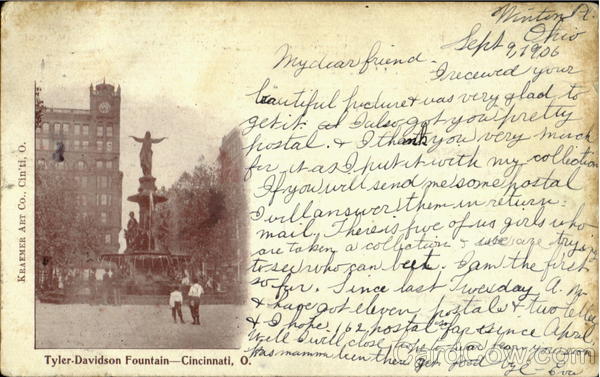 Winton
Ohio
Sept 9, 1906
My dear friend.
I receved your
beautiful picture & was very glad to
get it. I also got you pretty
postal. & I thank you very much
for it as I put it with my collection
If you will send me some postal
I will answer them in return
mail. Their is five of us girls who
are taken a collection & we are trying
to see who can beet. I am the first
so far. Since last Tuesday A. M.
I have got eleven postals & two
& I hope. 162 postal so far since April
Well I will close hope to hear from you soon
Was mamma been there yet good bye - Eva
KRAEMER ART CO., Cin'ti, O.
Tyler-Davidson Fountain—Cincinnati, O.
CardCow.com